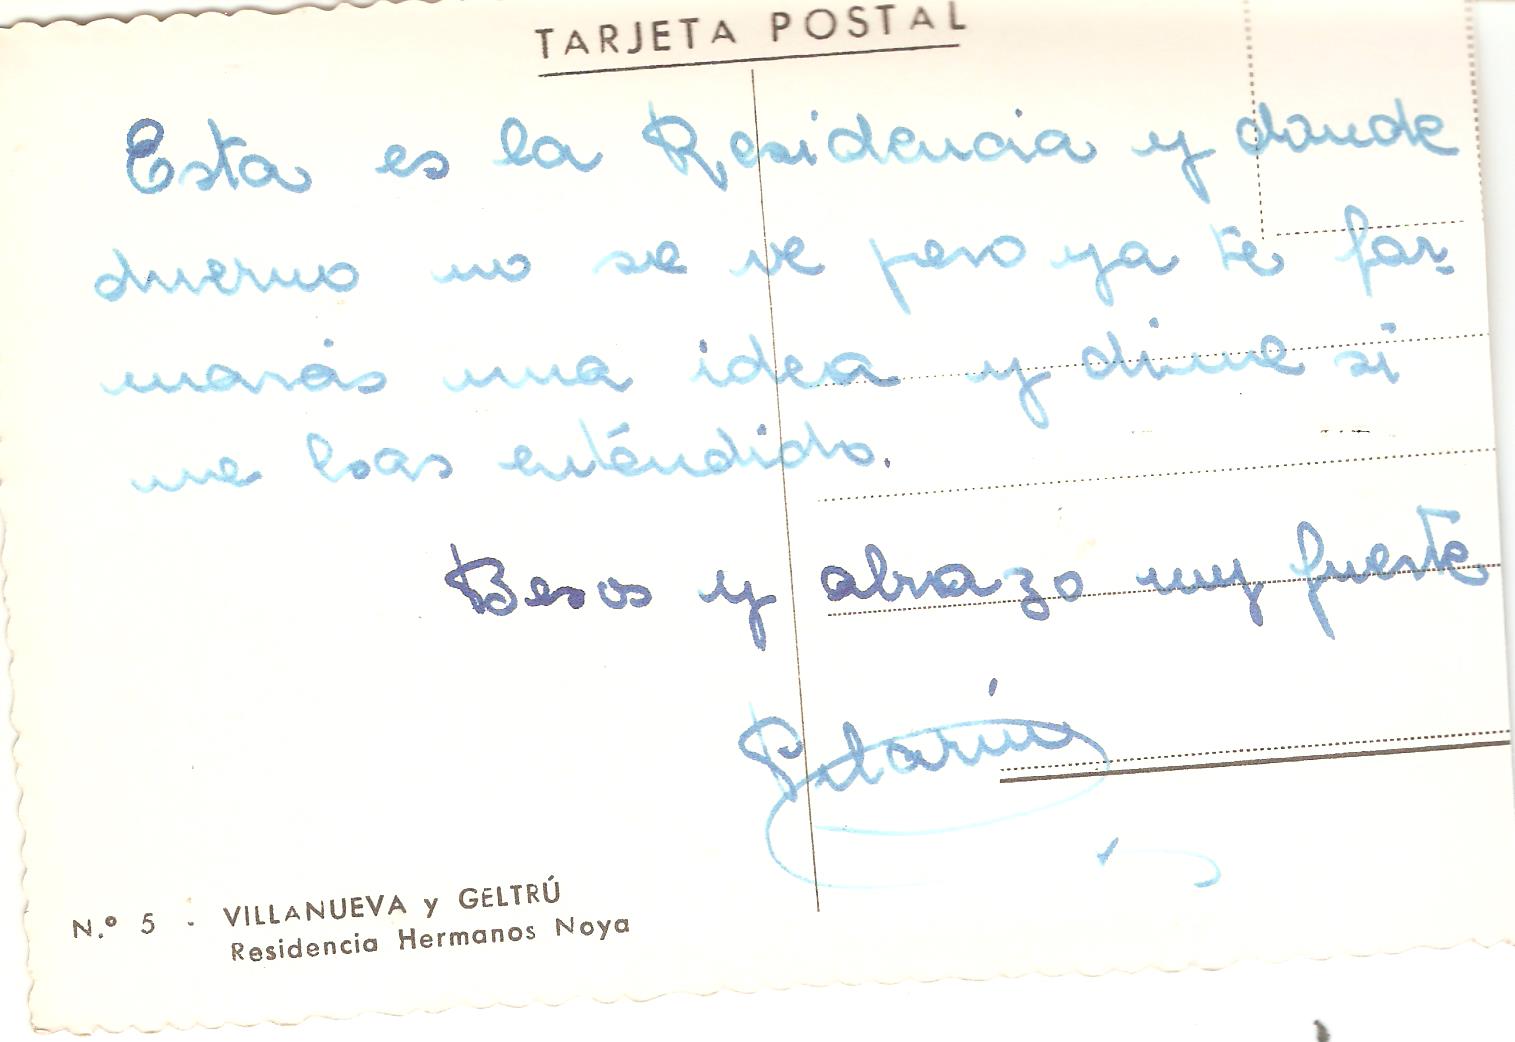 TARJETA POSTAL
Esta es la Residencia y donde
duermo no se ve pero ya te for-
marás una idea y dime si
me has entendido.
Besos y abrazo muy fuerte
N.º 5 - VILLANUEVA y GELTRÚ
Residencia Hermanos Noya